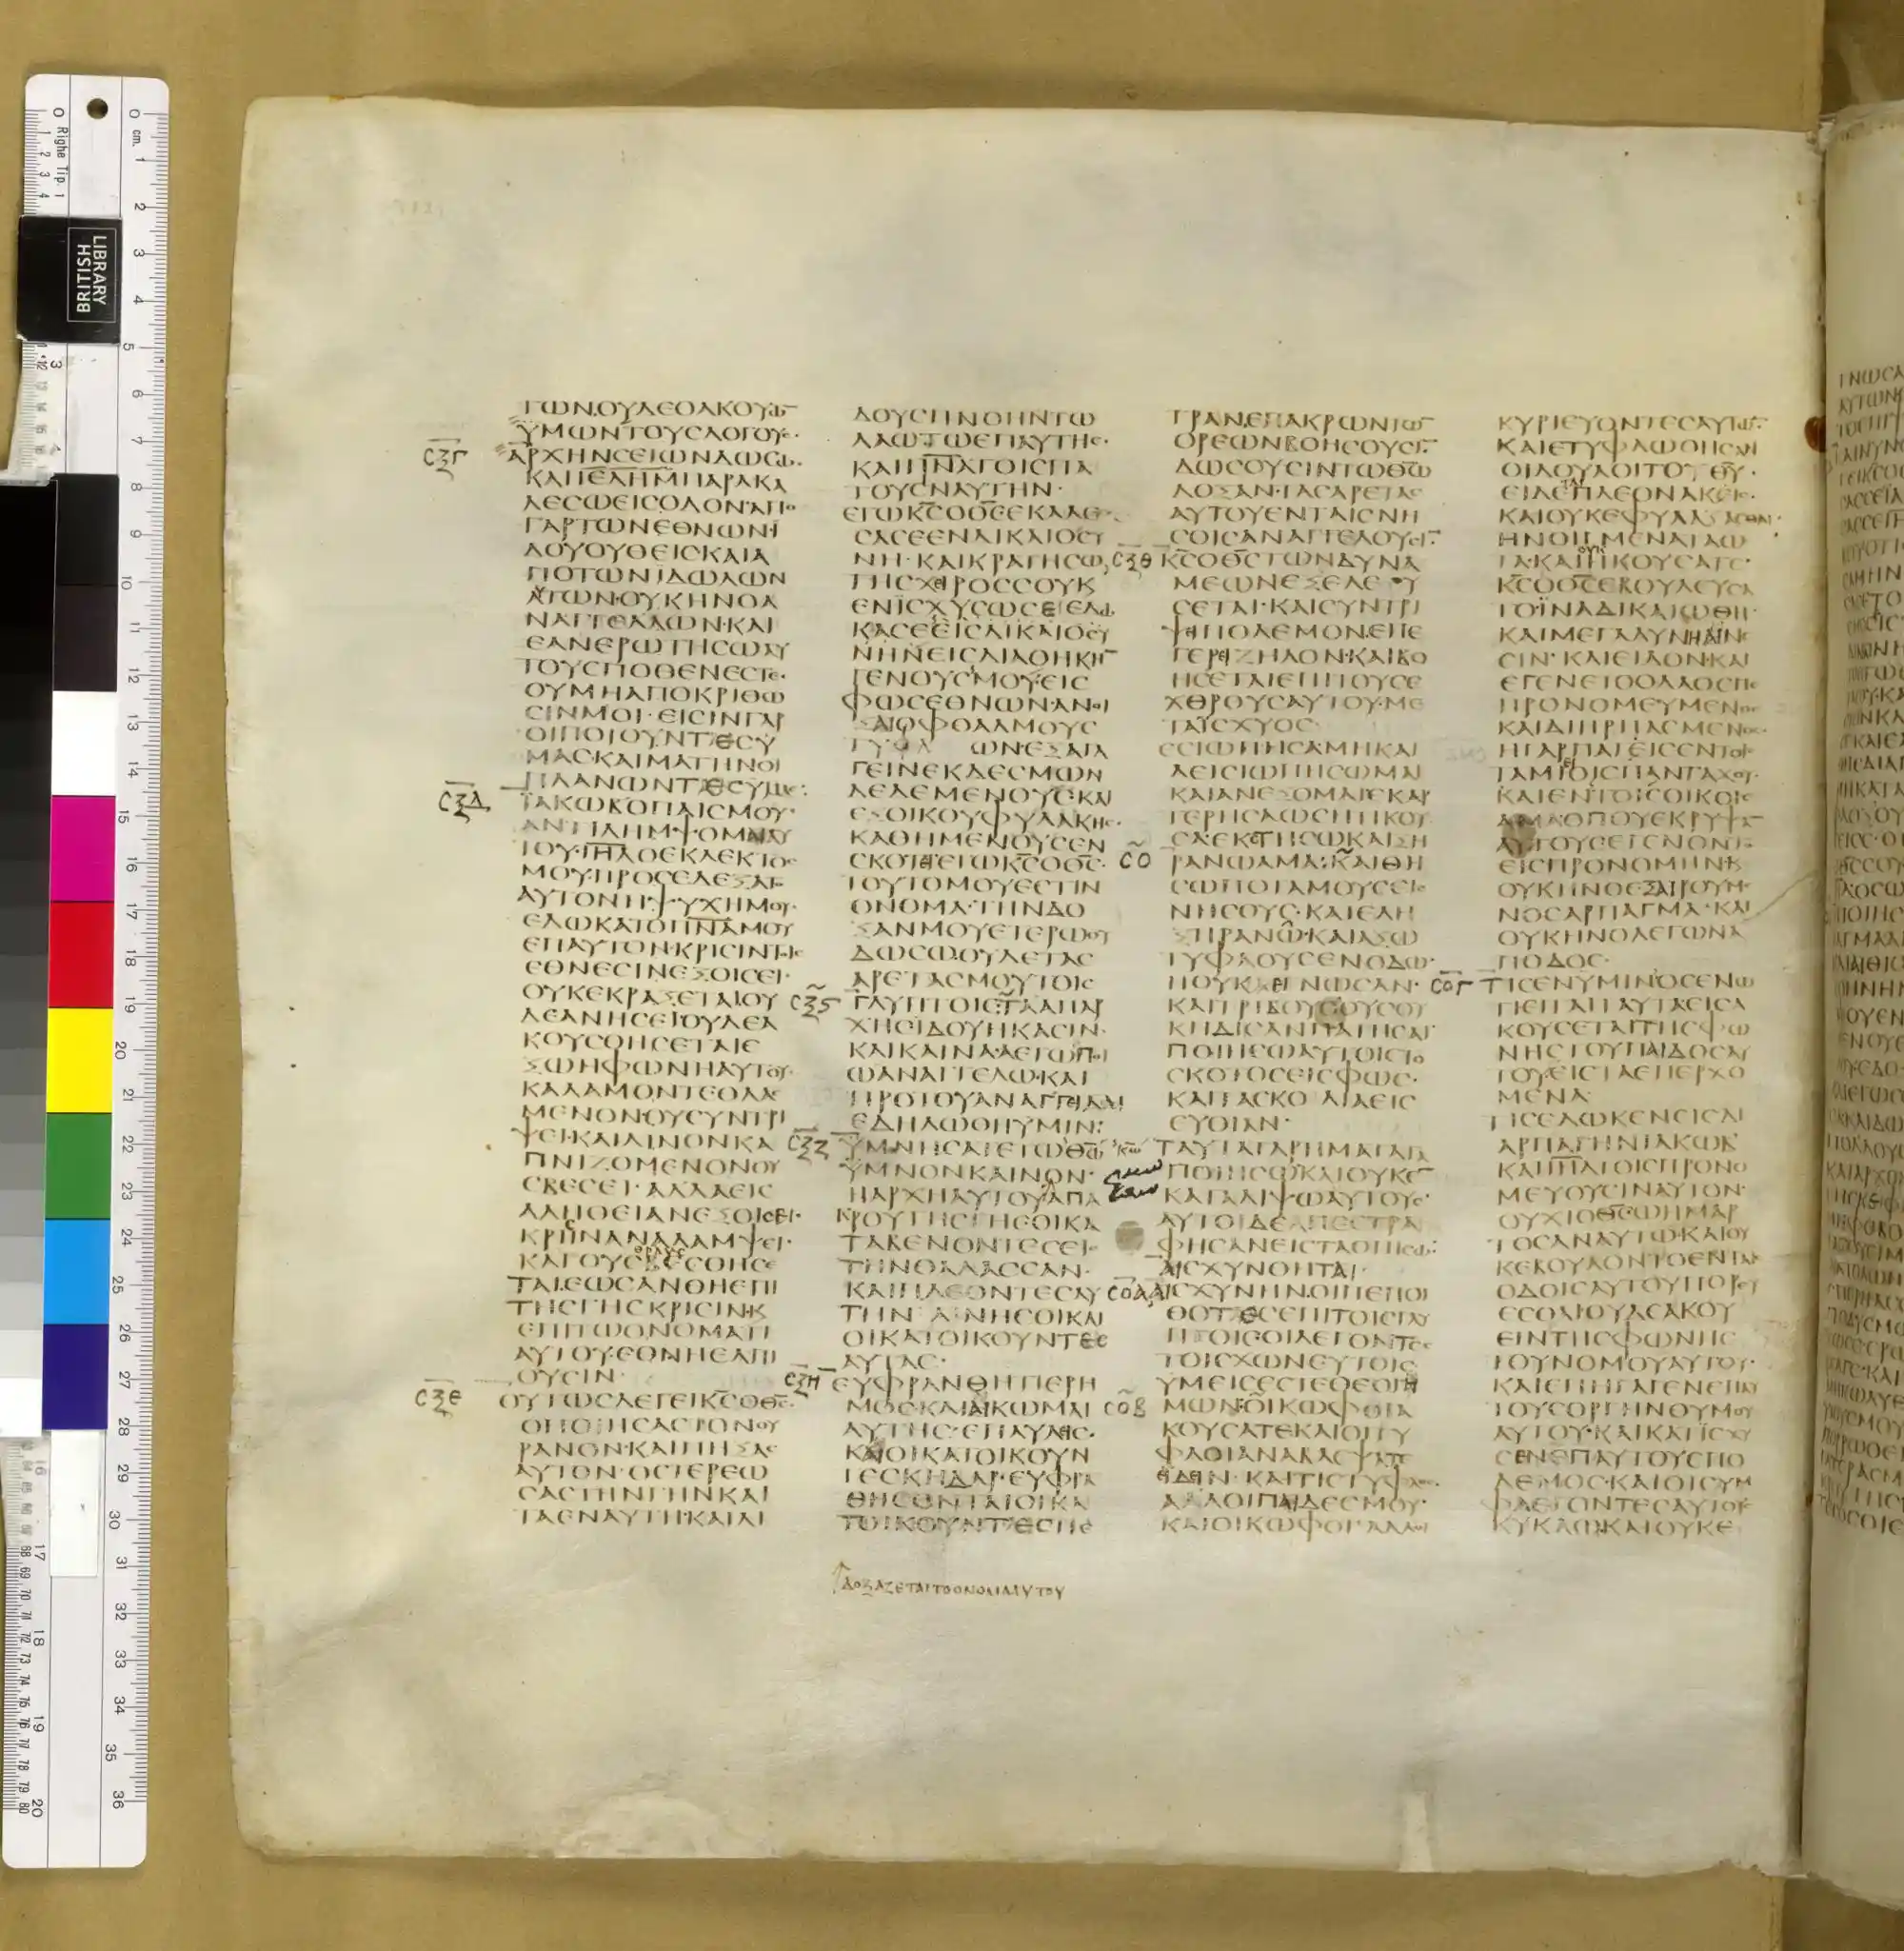 ΓΩΝ·ΟΥΔΕΟΑΚΟΥΩ̅
ΫΜΩΝΤΟΥΣΛΟΓΟΥΣ·
ΑΡΧΗΝΣΕΙΩΝΔΩΣΩ·
ΚΑΙΪΕΛΗΜΠΑΡΑΚΑ
ΛΕΣΩΕΙΣΟΔΟΝ·ΑΠΟ
ΓΑΡΤΩΝΕΘΝΩΝΪ
ΔΟΥΟΥΘΕΙΣΚΑΙΑ
ΠΟΤΩΝΙΔΩΛΩΝ
ΑΥΤΩΝ·ΟΥΚΗΝΟΑ
ΝΑΓΓΕΛΛΩΝ·ΚΑΙ
ΕΑΝΕΡΩΤΗΣΩΑΥ
ΤΟΥΣΠΟΘΕΝΕΣΤΕ·
ΟΥΜΗΑΠΟΚΡΙΘΩ
ΣΙΝΜΟΙ·ΕΙΣΙΝΓΑΡ
ΟΙΠΟΙΟΥΝΤΕΣΥ
ΜΑΣΚΑΙΜΑΤΗΝΟΙ
ΠΛΑΝΩΝΤΕΣΥΜΑΣ:
ΪΑΚΩΒΟΠΑΙΣΜΟΥ·
ΑΝΤΙΛΗΜΨΟΜΑΙΑΥ
ΤΟΥ·ΙΗΛΟΕΚΛΕΚΤΟΣ
ΜΟΥ·ΠΡΟΣΕΔΕΞΑΤΟ
ΑΥΤΟΝΗΨΥΧΗΜΟΥ·
ΕΔΩΚΑΤΟΠΝΑΜΟΥ
ΕΠΑΥΤΟΝ·ΚΡΙΣΙΝΤΟΙΣ
ΕΘΝΕΣΙΝΕΞΟΙΣΕΙ·
ΟΥΚΕΚΡΑΞΕΤΑΙΟΥ
ΔΕΑΝΗΣΕΙΟΥΔΕΑ
ΚΟΥΣΘΗΣΕΤΑΙΕ
ΞΩΗΦΩΝΗΑΥΤΟΥ·
ΚΑΛΑΜΟΝΤΕΘΛΑΣ
ΜΕΝΟΝ·ΟΥΣΥΝΤΡΙ
ΨΕΙ·ΚΑΙΛΙΝΟΝΚΑ
ΠΝΙΖΟΜΕΝΟΝΟΥ
ΣΒΕΣΕΙ·ΑΛΛΑΕΙΣ
ΑΛΗΘΕΙΑΝΕΞΟΙΣΕΙ·
ΚΡΙΣΙΝΑΝΑΛΑΜΨΕΙ·
ΚΑΙΟΥΣΒΕΣΘΗΣΕ
ΤΑΙ·ΕΩΣΑΝΘΗΕΠΙ
ΤΗΣΓΗΣΚΡΙΣΙΝ·Κ
ΕΠΙΤΩΟΝΟΜΑΤΙ
ΑΥΤΟΥ·ΕΘΝΗΕΛΠΙ
ΟΥΣΙΝ·
ΟΥΤΩΣΛΕΓΕΙΚΣΟΘΣ·
ΟΠΟΙΗΣΑΣΤΟΝΟΥ
ΡΑΝΟΝ·ΚΑΙΠΗΞΑΣ
ΑΥΤΟΝ·ΟΣΤΕΡΕΩ
ΣΑΣΤΗΝΓΗΝΚΑΙ
ΤΑΕΝΑΥΤΗ·ΚΑΙΔΙ
ΔΟΥΣΠΝΟΗΝΤΩ
ΛΑΩΤΩΕΠΑΥΤΗΣ·
ΚΑΙΠΝΑΤΟΙΣΠΑ
ΤΟΥΣΙΝΑΥΤΗΝ·
ΕΓΩΚΣΟΘΣΕΚΑΛΕ
ΣΑΣΕΕΝΔΙΚΑΙΟΣΥ
ΝΗ·ΚΑΙΚΡΑΤΗΣΩ
ΤΗΣΧΕΙΡΟΣΣΟΥΚ
ΕΝΙΣΧΥΣΩΣΕ·ΕΔΩ
ΚΑΣΕΕΙΣΔΙΚΑΙΟΣΥ
ΝΗΝΕΙΣΔΙΑΘΗΚΗ̅
ΓΕΝΟΥΣΜΟΥ·ΕΙΣ
ΦΩΣΕΘΝΩΝ·ΑΝΟΙ
ΞΑΙΟΦΘΑΛΜΟΥΣ
ΤΥΦΛΩΝ·ΕΞΑΓΑ
ΓΕΙΝΕΚΔΕΣΜΩΝ
ΔΕΔΕΜΕΝΟΥΣ·ΚΑΙ
ΕΞΟΙΚΟΥΦΥΛΑΚΗΣ·
ΚΑΘΗΜΕΝΟΥΣΕΝ
ΣΚΟΤΕΙ·ΕΓΩΚΣΟΘΣ·
ΤΟΥΤΟΜΟΥΕΣΤΙΝ
ΟΝΟΜΑ·ΤΗΝΔΟ
ΞΑΝΜΟΥΕΤΕΡΩΟΥ
ΔΩΣΩ·ΟΥΔΕΤΑΣ
ΑΡΕΤΑΣΜΟΥΤΟΙΣ
ΓΛΥΠΤΟΙΣ·ΤΑΑΠΑΡ
ΧΗΣΙΔΟΥΗΚΑΣΙΝ·
ΚΑΙΚΑΙΝΑ·ΑΕΓΩΠΟΙ
ΩΑΝΑΓΓΕΛΩ·ΚΑΙ
ΠΡΟΤΟΥΑΝΑΓΓΕΙΛΑΙ
ΕΔΗΛΩΘΗΥΜΙΝ:
ΫΜΝΗΣΑΤΕΤΩΘΩ̅
ΫΜΝΟΝΚΑΙΝΟΝ·
ΗΑΡΧΗΑΥΤΟΥΑΠΑ
ΚΡΟΥΤΗΣΓΗΣΟΙΚΑ
ΤΑΒΕΝΟΝΤΕΣΕΙΣ
ΤΗΝΘΑΛΑΣΣΑΝ·
ΚΑΙΠΛΕΟΝΤΕΣΑΥ
ΤΗΝ·ΑΙΝΗΣΟΙΚΑΙ
ΟΙΚΑΤΟΙΚΟΥΝΤΕΣ
ΑΥΤΑΣ·
ΕΥΦΡΑΝΘΗΤΙΕΡΗ
ΜΟΣ·ΚΑΙΑΙΚΩΜΑΙ
ΑΥΤΗΣ·ΕΠΑΥΛΕΙΣ·
ΚΑΙΟΙΚΑΤΟΙΚΟΥΝ
ΤΕΣΚΗΔΑΡ·ΕΥΦΡΑ
ΘΗΣΟΝΤΑΙΟΙΚΑ
ΤΟΙΚΟΥΝΤΕΣΠΕ
ΔΟΞΑΖΕΤΑΙΤΟΟΝΟΜΑΑΥΤΟΥ
ΤΡΑΝ·ΕΠΑΚΡΩΝΤΩ̅
ΟΡΕΩΝΒΟΗΣΟΥΣΙ̅·
ΔΩΣΟΥΣΙΝΤΩΘΩ̅
ΔΟΞΑΝ·ΤΑΣΑΡΕΤΑΣ
ΑΥΤΟΥΕΝΤΑΙΣΝΗ
ΣΟΙΣΑΝΑΓΓΕΛΟΥΣΙ̅·
ΚΣΟΘΣΤΩΝΔΥΝΑ
ΜΕΩΝΕΞΕΛΕΥ
ΣΕΤΑΙ·ΚΑΙΣΥΝΤΡΙ
ΨΕΙΠΟΛΕΜΟΝ·ΕΠΕ
ΓΕΡΕΙΖΗΛΟΝ·ΚΑΙΒΟ
ΗΣΕΤΑΙΕΠΙΤΟΥΣΕ
ΧΘΡΟΥΣΑΥΤΟΥ·ΜΕ
ΤΑΪΣΧΥΟΣ·
ΕΣΙΩΠΗΣΑΜΗΚΑΙ
ΑΕΙΣΙΩΠΗΣΩΜΑΙ
ΚΑΙΑΝΕΞΟΜΑΙ·ΕΚΑΡ
ΤΕΡΗΣΑΩΣΗΤΙΚΟΥ
ΣΑ·ΕΚΣΤΗΣΩΚΑΙΞΗ
ΡΑΝΩΑΜΑ:ΚΑΙΘΗ
ΣΩΠΟΤΑΜΟΥΣΕΙΣ
ΝΗΣΟΥΣ·ΚΑΙΕΛΗ
ΞΗΡΑΝΩ·ΚΑΙΑΞΩ
ΤΥΦΛΟΥΣΕΝΟΔΩ·
ΗΟΥΚΕΓΝΩΣΑΝ·
ΚΑΙΤΡΙΒΟΥΣΟΥΣΟΥ
ΚΗΔΙΣΑΝΠΑΤΗΣΑΙ·
ΠΟΙΗΣΩΑΥΤΟΙΣΤΟ
ΣΚΟΤΟΣΕΙΣΦΩΣ·
ΚΑΙΤΑΣΚΟΛΙΑΕΙΣ
ΕΥΘΙΑΝ·
ΤΑΥΤΑΓΑΡΗΜΑΤΑΠΑ
ΠΟΙΗΣΩΚΑΙΟΥΚΕ̅
ΚΑΤΑΛΙΨΩΑΥΤΟΥΣ·
ΑΥΤΟΙΔΕΑΠΕΣΤΡΑ
ΦΗΣΑΝΕΙΣΤΑΟΠΙΣΩ:
ΑΙΣΧΥΝΘΗΤΑΙ
ΑΙΣΧΥΝΗΝ·ΟΙΠΕΠΟΙ
ΘΟΤΕΣΕΠΙΤΟΙΣΓΛΥ
ΠΤΟΙΣΟΙΛΕΓΟΝΤΕΣ
ΤΟΙΣΧΩΝΕΥΤΟΙΣ
ΥΜΕΙΣΕΣΤΕΘΕΟΙΗ
ΜΩΝ·ΟΙΚΩΦΟΙΑ
ΚΟΥΣΑΤΕΚΑΙΟΙΤΥ
ΦΛΟΙΑΝΑΒΛΕΨΑΤΕ
ΙΔΕΙΝ·ΚΑΙΤΙΣΤΥΦΛΟΣ
ΑΛΛΟΙΠΑΙΔΕΣΜΟΥ·
ΚΑΙΟΙΚΩΦΟΙΑΛΛΟΙ
ΚΥΡΙΕΥΟΝΤΕΣΑΥΤΩ̅·
ΚΑΙΕΤΥΦΛΩΘΗΣΑΝ
ΟΙΔΟΥΛΟΙΤΟΥΘΥ·
ΕΙΔΕΤΑΙΠΛΕΟΝΑΚΙΣ·
ΚΑΙΟΥΚΕΦΥΛΑΞΑΣΘΑΙ·
ΗΝΟΙΓΜΕΝΑΤΑΩ
ΤΑ·ΚΑΙΟΥΚΗΚΟΥΣΑΤΕ·
ΚΣΟΘΣΕΒΟΥΛΕΥΣΑ
ΤΟΪΝΑΔΙΚΑΙΩΘΗ·
ΚΑΙΜΕΓΑΛΥΝΗΑΙΝΕ
ΣΙΝ·ΚΑΙΕΙΔΟΝ·ΚΑΙ
ΕΓΕΝΕΤΟΟΛΑΟΣΠΕ
ΠΡΟΝΟΜΕΥΜΕΝΟΣ
ΚΑΙΔΙΗΡΠΑΣΜΕΝΟΣ·
ΗΓΑΡΠΑΓΕΙΣΕΝΤΟΙΣ
ΤΑΜΕΙΟΙΣΠΑΝΤΑΧΟΥ·
ΚΑΙΕΝΤΟΙΣΟΙΚΟΙΣ
ΑΜΑΟΠΟΥΕΚΡΥΨΑ̅
ΑΥΤΟΥΣΕΓΕΝΟΝΤΟ
ΕΙΣΠΡΟΝΟΜΗΝ·Κ
ΟΥΚΗΝΟΕΞΑΙΡΟΥΜΕ
ΝΟΣΑΡΠΑΓΜΑ·ΚΑΙ
ΟΥΚΗΝΟΛΕΓΩΝΑ
ΠΟΔΟΣ·
ΤΙΣΕΝΥΜΙΝΟΣΕΝΩ
ΤΙΕΙΤΑΙΤΑΥΤΑΕΙΣΑ
ΚΟΥΣΕΤΑΙΤΗΣΦΩ
ΝΗΣΤΟΥΠΑΙΔΟΣΑΥ
ΤΟΥ·ΕΙΣΤΑΕΠΕΡΧΟ
ΜΕΝΑ·
ΤΙΣΕΔΩΚΕΝΕΙΣΔΙ
ΑΡΠΑΓΗΝΙΑΚΩΒ
ΚΑΙΙΗΛΤΟΙΣΠΡΟΝΟ
ΜΕΥΟΥΣΙΝΑΥΤΟΝ·
ΟΥΧΙΟΘΣΩΗΜΑΡ
ΤΟΣΑΝΑΥΤΩ·ΚΑΙΟΥ
ΚΕΒΟΥΛΟΝΤΟΕΝΤΑΙΣ
ΟΔΟΙΣΑΥΤΟΥΠΟΡΕΥ
ΕΣΘΑΙΟΥΔΕΑΚΟΥ
ΕΙΝΤΗΣΦΩΝΗΣ
ΤΟΥΝΟΜΟΥΑΥΤΟΥ·
ΚΑΙΕΠΗΓΑΓΕΝΕΠΑΥ
ΤΟΥΣΟΡΓΗΝΘΥΜΟΥ
ΑΥΤΟΥ·ΚΑΙΚΑΤΙΣΧΥ
ΣΕΝΕΠΑΥΤΟΥΣΠΟ
ΛΕΜΟΣ·ΚΑΙΟΙΣΥΜ
ΦΛΕΓΟΝΤΕΣΑΥΤΟΥΣ
ΚΥΚΛΩ·ΚΑΙΟΥΚΕ
BRITISH
LIBRARY